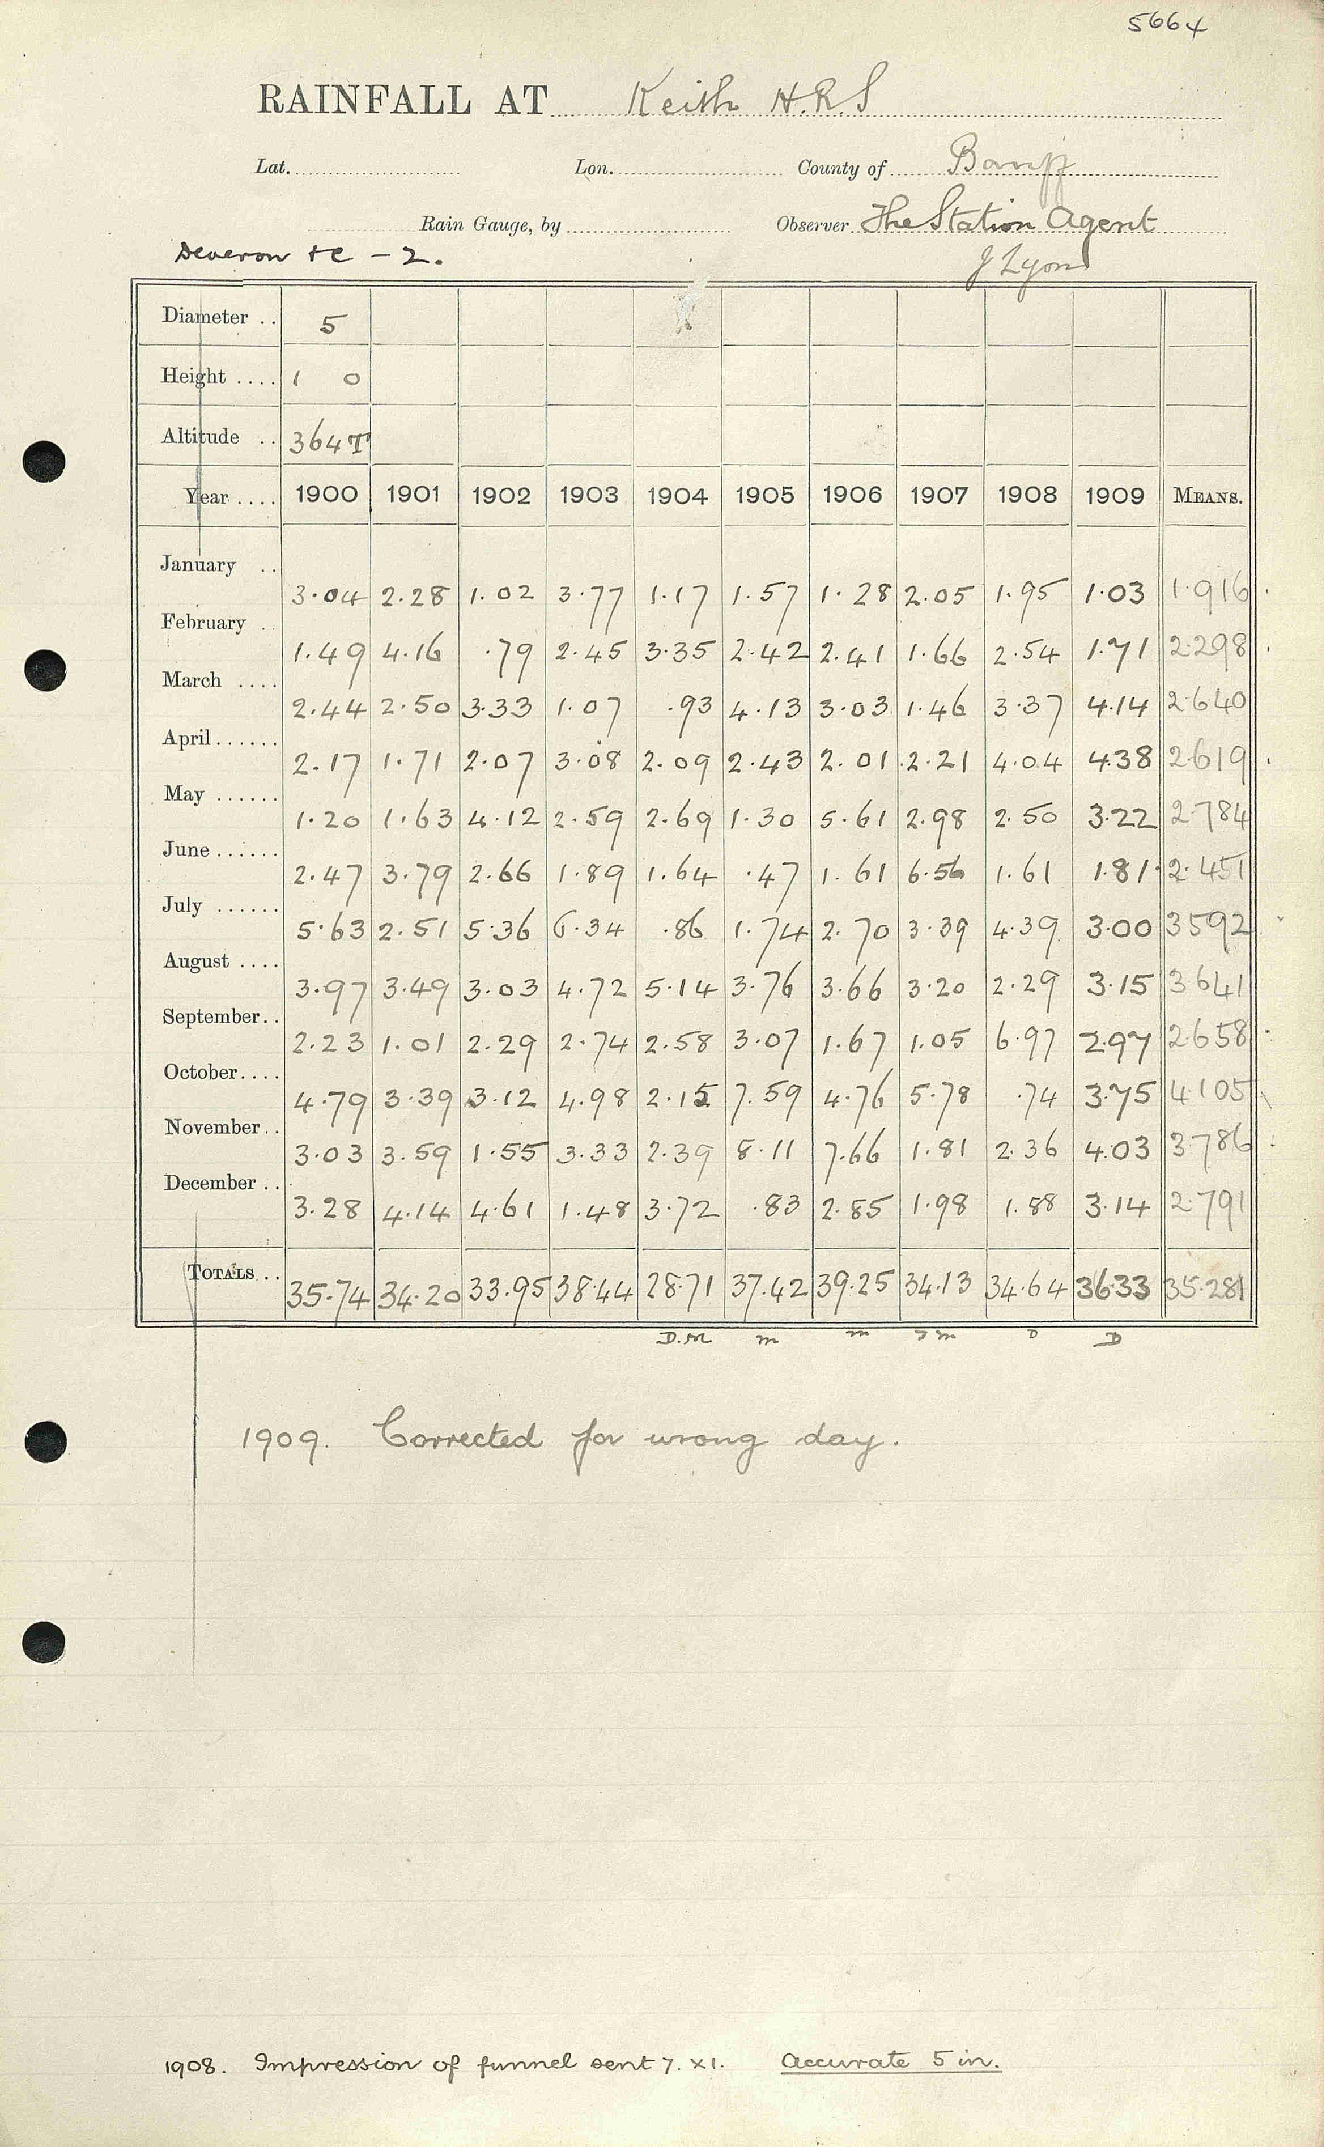 5664
RAINFALL AT Keith H.R.S
Lat. Lon. County of Banff
Rain Gauge, by Observer The Station Agent
Deveron &c - 2. J Lyon
Diameter .. 5
Height .... 1 0
Altitude .. 364T
Year .... 1900 1901 1902 1903 1904 1905 1906 1907 1908 1909 MEANS.
January .. 3.04 2.28 1.02 3.77 1.17 1.57 1.28 2.05 1.95 1.03 1.916
February . 1.49 4.16 .79 2.45 3.35 2.42 2.41 1.66 2.54 1.71 2.298
March .... 2.44 2.50 3.33 1.07 .93 4.13 3.03 1.46 3.37 4.14 2.640
April...... 2.17 1.71 2.07 3.08 2.09 2.43 2.01 2.21 4.04 4.38 2.619
May ...... 1.20 1.63 4.12 2.59 2.69 1.30 5.61 2.98 2.50 3.22 2.784
June...... 2.47 3.79 2.66 1.89 1.64 .47 1.61 6.56 1.61 1.81 2.451
July ...... 5.63 2.51 5.36 6.34 .86 1.74 2.70 3.39 4.39 3.00 3592
August .... 3.97 3.49 3.03 4.72 5.14 3.76 3.66 3.20 2.29 3.15 3641
September.. 2.23 1.01 2.29 2.74 2.58 3.07 1.67 1.05 6.97 2.97 2658
October.... 4.79 3.39 3.12 4.98 2.15 7.59 4.76 5.78 .74 3.75 4105
November.. 3.03 3.59 1.55 3.33 2.39 8.11 7.66 1.81 2.36 4.03 3.786
December .. 3.28 4.14 4.61 1.48 3.72 .83 2.85 1.98 1.88 3.14 2.791
TOTALS .. 35.74 34.20 33.95 38.44 28.71 37.42 39.25 34.13 34.64 36.33 35.281
D.M m m m D D
1909. Corrected for wrong day.
1908. Impression of funnel sent 7. XI. Accurate 5 in.